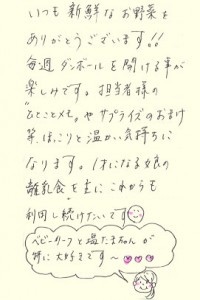 いつも新鮮なお野菜を
ありがとうございます!!
毎週ダンボールを開ける事が
楽しみです。担当者様の
"ひとことメモ"やサプライズのおまけ
等、ほっこりと温かい気持ちに
なります。1才になる娘の
離乳食を主にこれからも
利用し続けたいです
ベビーリーフと温たまちゃんが
特に大好きです〜